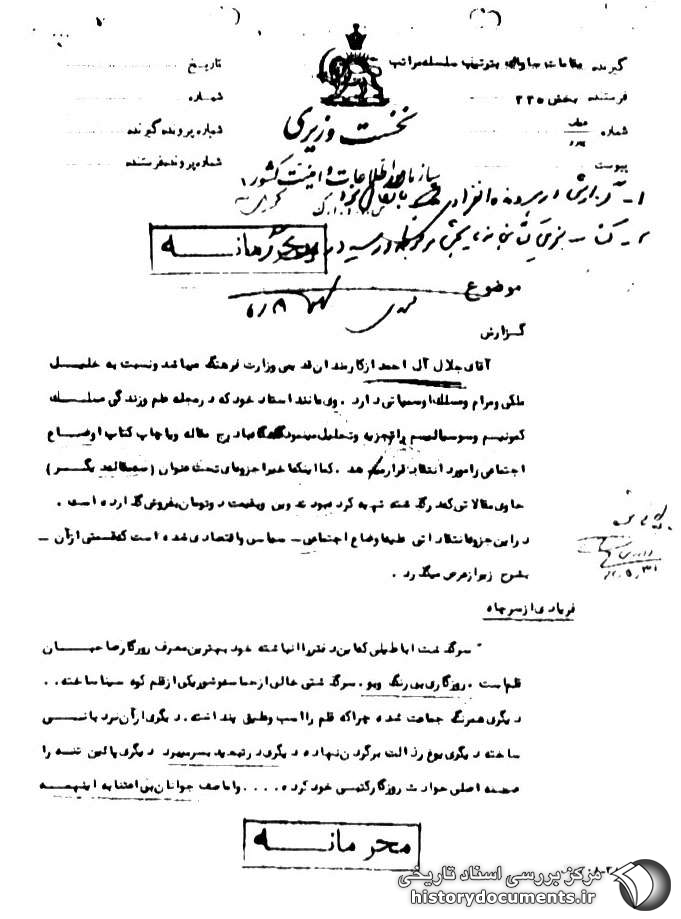 گیرنده مقامات ساواک بترتیب سلسله مراتب
فرستنده بخش ۲۲۵
شماره
پیوست
تاریخ
شماره
شماره پرونده گیرنده
شماره پرونده فرستنده
نخست وزیری
سازمان اطلاعات و امنیت کشور
محرمانه
موضوع
گزارش
آقای جلال آل احمد از کارمندان قدیمی وزارت فرهنگ میباشد و نسبت به خلیل
ملکی و مرام و مسلک او سمپاتی دارد . وی مانند استاد خود که در مجله علم و زندگی مسلک
کمونیسم و سوسیالیسم را تجزیه و تحلیل مینمود گاهگاه با درج مقاله و یا چاپ کتاب اوضاع
اجتماعی را مورد انتقاد قرار میدهد . کما اینکه اخیرا جزوه‌ای تحت عنوان ( سه مقاله دیگر )
حاوی مقالاتی که در گذشته تهیه کرده بود تدوین و بقیمت دو تومان بفروش گذارده است .
در این جزوه انتقاداتی علیه اوضاع اجتماعی – سیاسی و اقتصادی شده است که قسمتی از آن –
بشرح زیر از عرض میگذرد .
فریادی از سر چاه
" سرگذشت اباطیلی که این دفتر را انباشته خود بهترین معرف روزگار صاحبان
قلم است . روزگاری بی رنگ و بو . سرگذشتی خالی از حماسه و شور یکی از قلم کوه سینا ساخته . .
دیگری همرنگ جماعت شده چرا که قلم را اسب و طبق پنداشته . دیگری از آن نردبانی
ساخته دیگری یوغ رذالت بر گردن نهاده دیگری در تبعید بسر میبرد دیگری پائین تنه را
صحنه اصلی حوادث روزگار کتبی خود کرده . . . . و اما صف جوانان بی اعتنا به اینهمه
محرمانه
مرکز بررسی اسناد تاریخی
historydocuments.ir